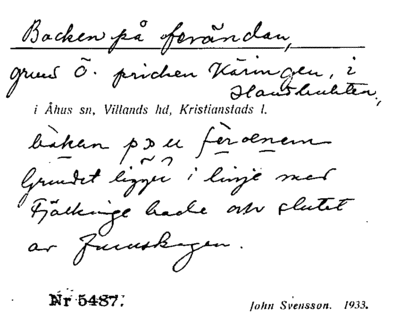 Backen på forändan,
grund Ö. pricken Käringen, i
Hanöbukten,
i Åhus sn, Villands hd, Kristianstads l.
bakan på
Grundet ligger i linje med
Fjälkinge backe och slutet
av Furuskogen.
Nr 5487.
John Svensson. 1933.